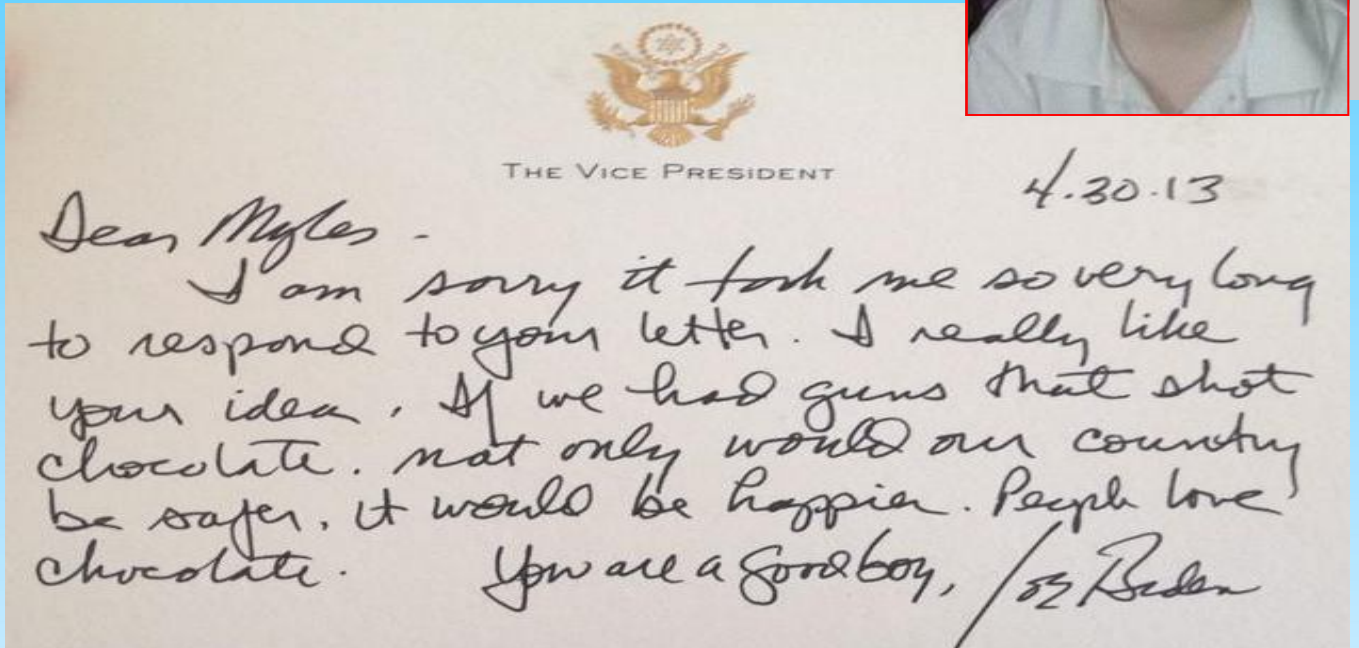 THE VICE PRESIDENT
4.30.13
Dear Myles -
I am sorry it took me so very long
to respond to your letter. I really like
your idea. If we had guns that shot
chocolate. not only would our country
be safer. it would be happier. People love
chocolate. You are a good boy, Joe Biden